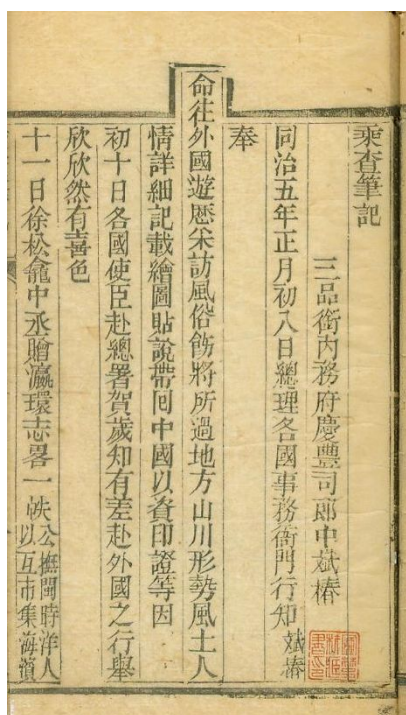 乘查筆記
三品銜內務府慶豐司郎中斌椿
同治五年正月初八日總理各國事務衙門行知斌椿
奉
命往外國遊歷采訪風俗飭將所過地方山川形勢風土人
情詳細記載繪圖貼說帶囘中國以資印證等因
初十日各國使臣赴總署賀歲知有差赴外國之行舉
欣欣然有喜色
十一日徐松龕中丞贈瀛環志畧一帙公撫閩時洋人
以互市集海濱